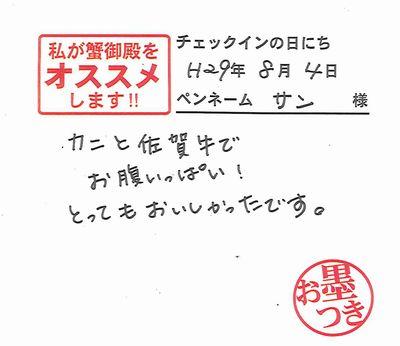 私が蟹御殿を
オススメ
します!!
チェックインの日にち
H29年 8月 4日
ペンネーム サン 様
カニと佐賀牛で
お腹いっぱい!
とってもおいしかったです。
お墨
つき